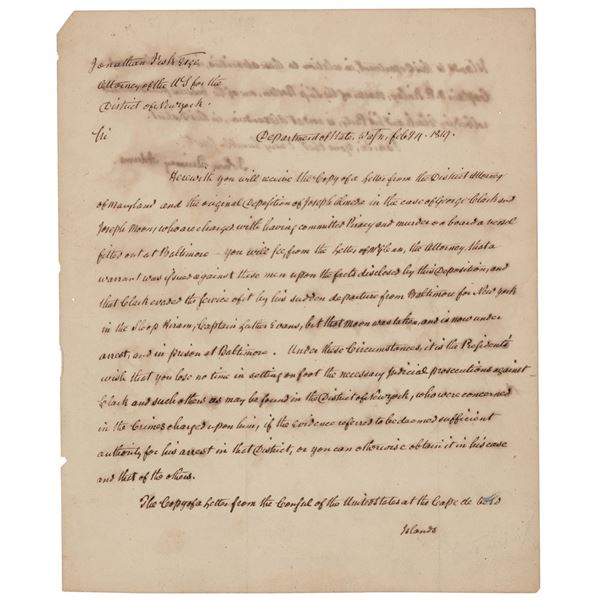 Jonathan Fisk Esqr
Attorney of the US for the
District of New York.
Sir
Department of State, Washn, feb 24. 1819.
Herewith you will receive the Copy of a Letter from the District Attorney
of Maryland and the original Deposition of Joseph Almeda in the case of George Clark and
Joseph Moon, who are charged with having committed Piracy and murder on board a vessel
fitted out at Baltimore – You will see from the Letter of Mr Glenn, the Attorney, that a
warrant was issued against these men upon the facts disclosed by this Deposition, and
that Clark evaded the service of it by his sudden departure from Baltimore for New York
in the Sloop Hiram, Captain Luther Evans, but that Moon was taken, and is now under
arrest, and in prison at Baltimore. Under these Circumstances, it is the President's
wish that you lose no time in setting on foot the necessary Judicial prosecutions against
Clark and such others as may be found in the District of New York, who were concerned
in the Crimes charged upon him, if the Evidence referred to be deemed sufficient
authority for his arrest in that District, or you can otherwise obtain it in his case
and that of the others.
The Copy of a Letter from the Consul of the United States at the Cape de Verd
Islands